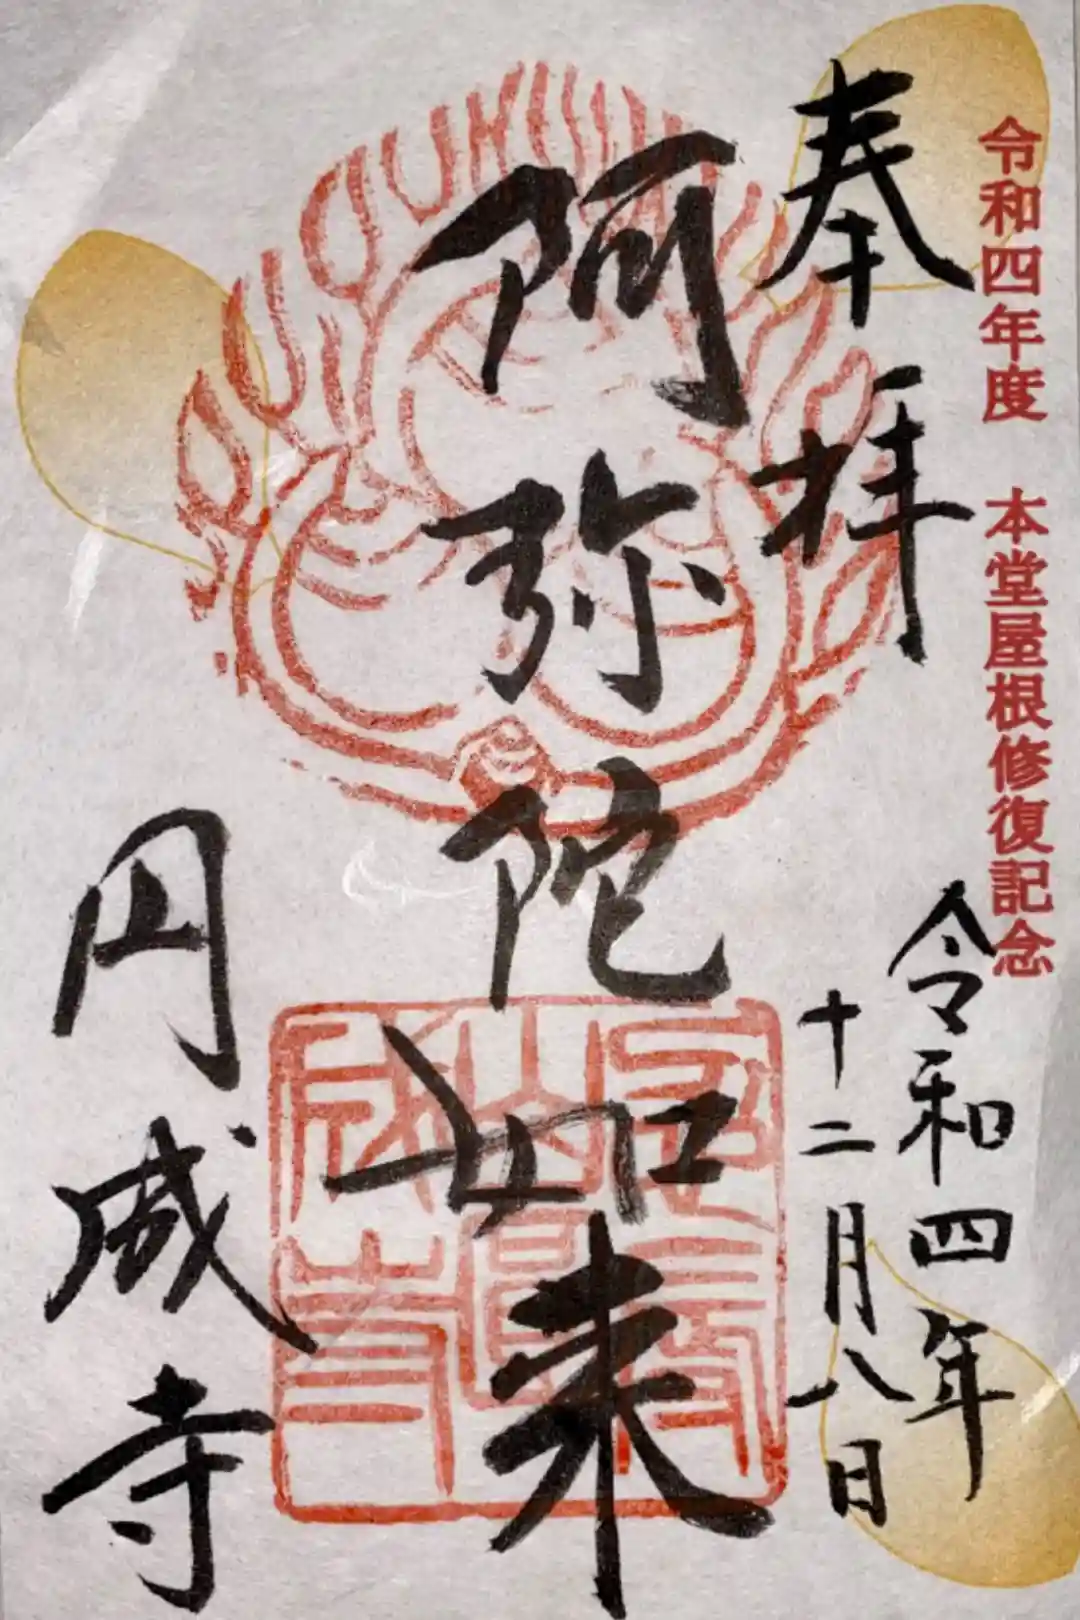 令和四年度　本堂屋根修復記念
奉拝
令和四年
十二月八日
阿弥陀如来
忍辱
山圓
成寺
円成寺